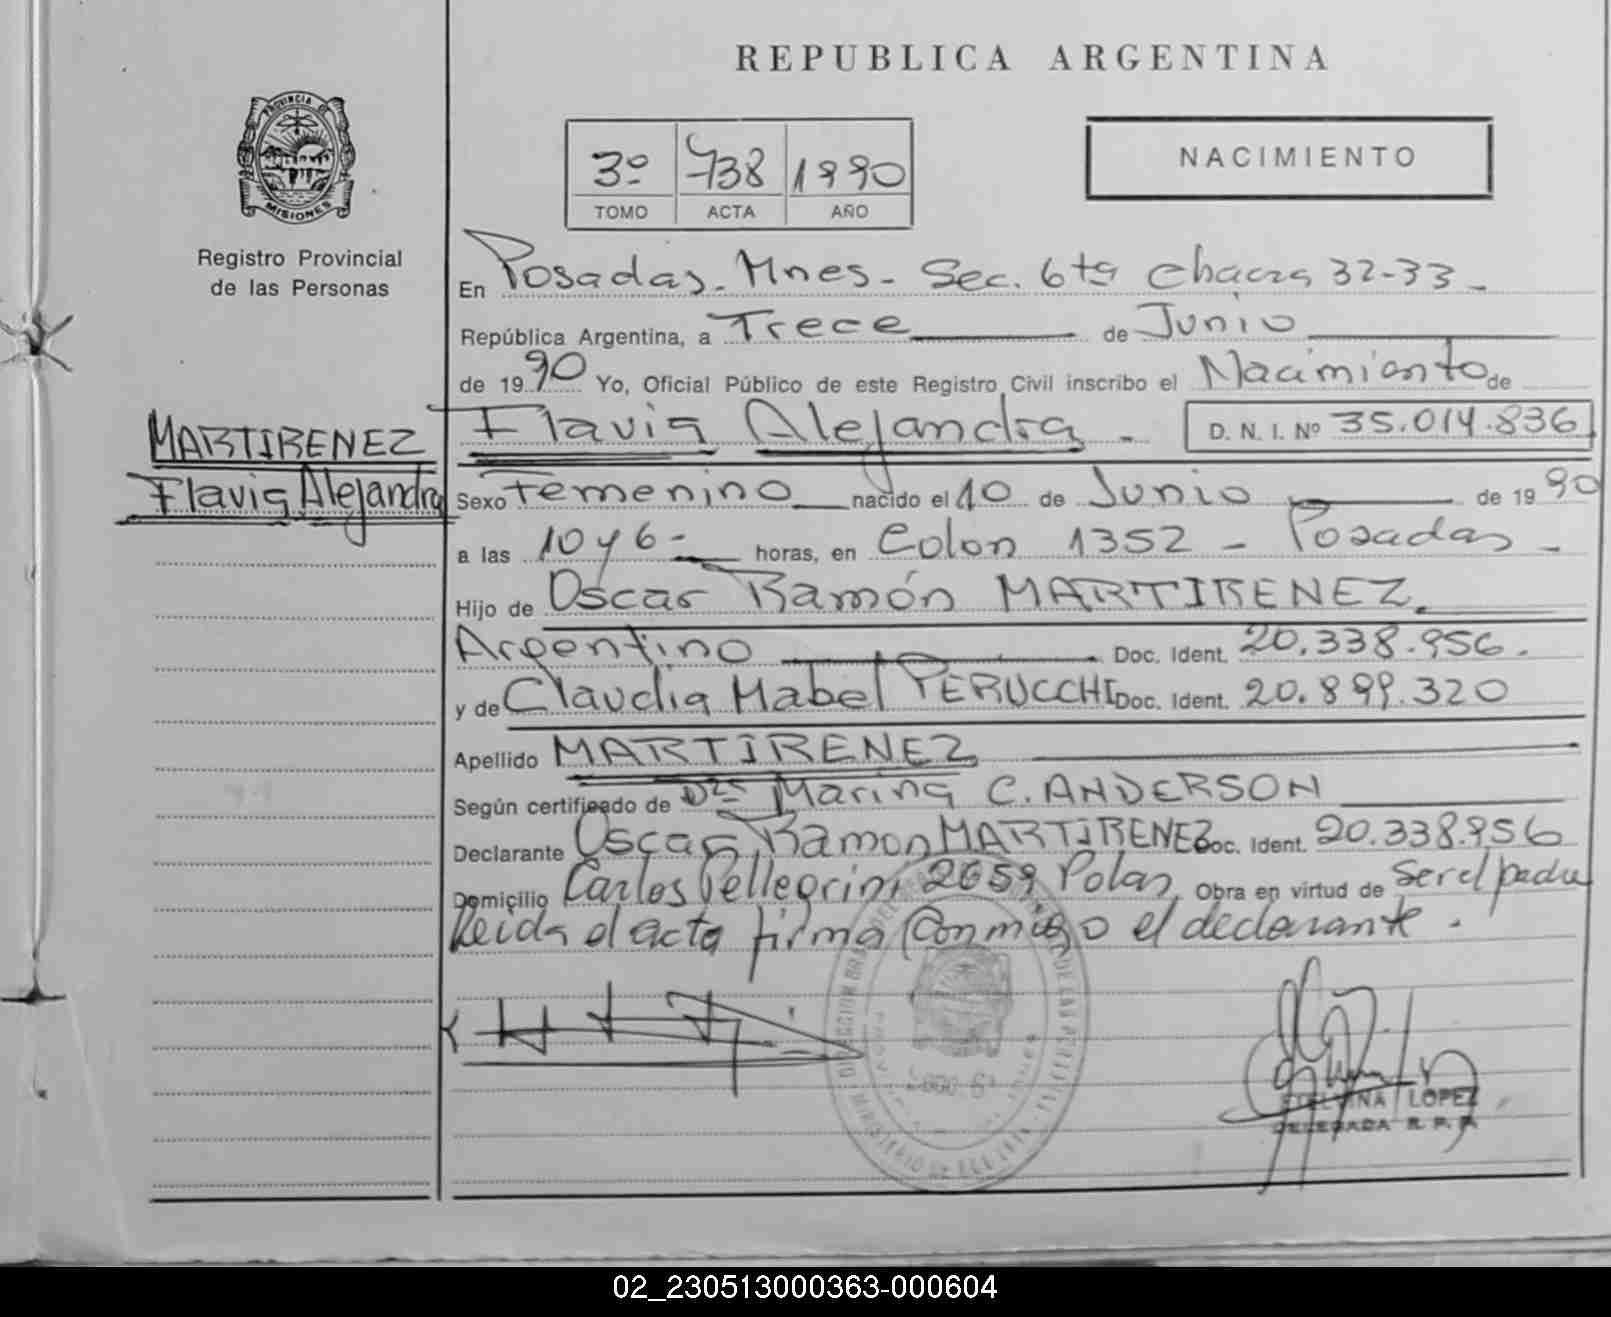 REPUBLICA ARGENTINA
PROVINCIA DE
MISIONES
Registro Provincial
de las Personas
3º 738 1990
TOMO ACTA AÑO
NACIMIENTO
En Posadas. Mnes- Sec. 6ta Chacra 32-33-
República Argentina, a Trece de Junio
de 1990 Yo, Oficial Público de este Registro Civil inscribo el Nacimiento de
MARTIRENEZ
Flavia Alejandra
Flavia Alejandra - D. N. I. Nº 35.014.836
Sexo Femenino nacido el 10 de Junio de 1990
a las 10 y 6- horas, en Colon 1352 - Posadas -
Hijo de Oscar Ramón MARTIRENEZ.
Argentino Doc. Ident. 20.338.956.
y de Claudia Mabel PERUCCHI Doc. Ident. 20.899.320
Apellido MARTIRENEZ
Según certificado de Dra Marina C. ANDERSON
Declarante Oscar Ramon MARTIRENEZ Doc. Ident. 20.338.956
Domicilio Carlos Pellegrini 2659 Pdas, Obra en virtud de Ser el padre
Leida el acta firma Conmigo el declarante.
LOPEZ
DELEGADA R. P. P.
02_230513000363-000604